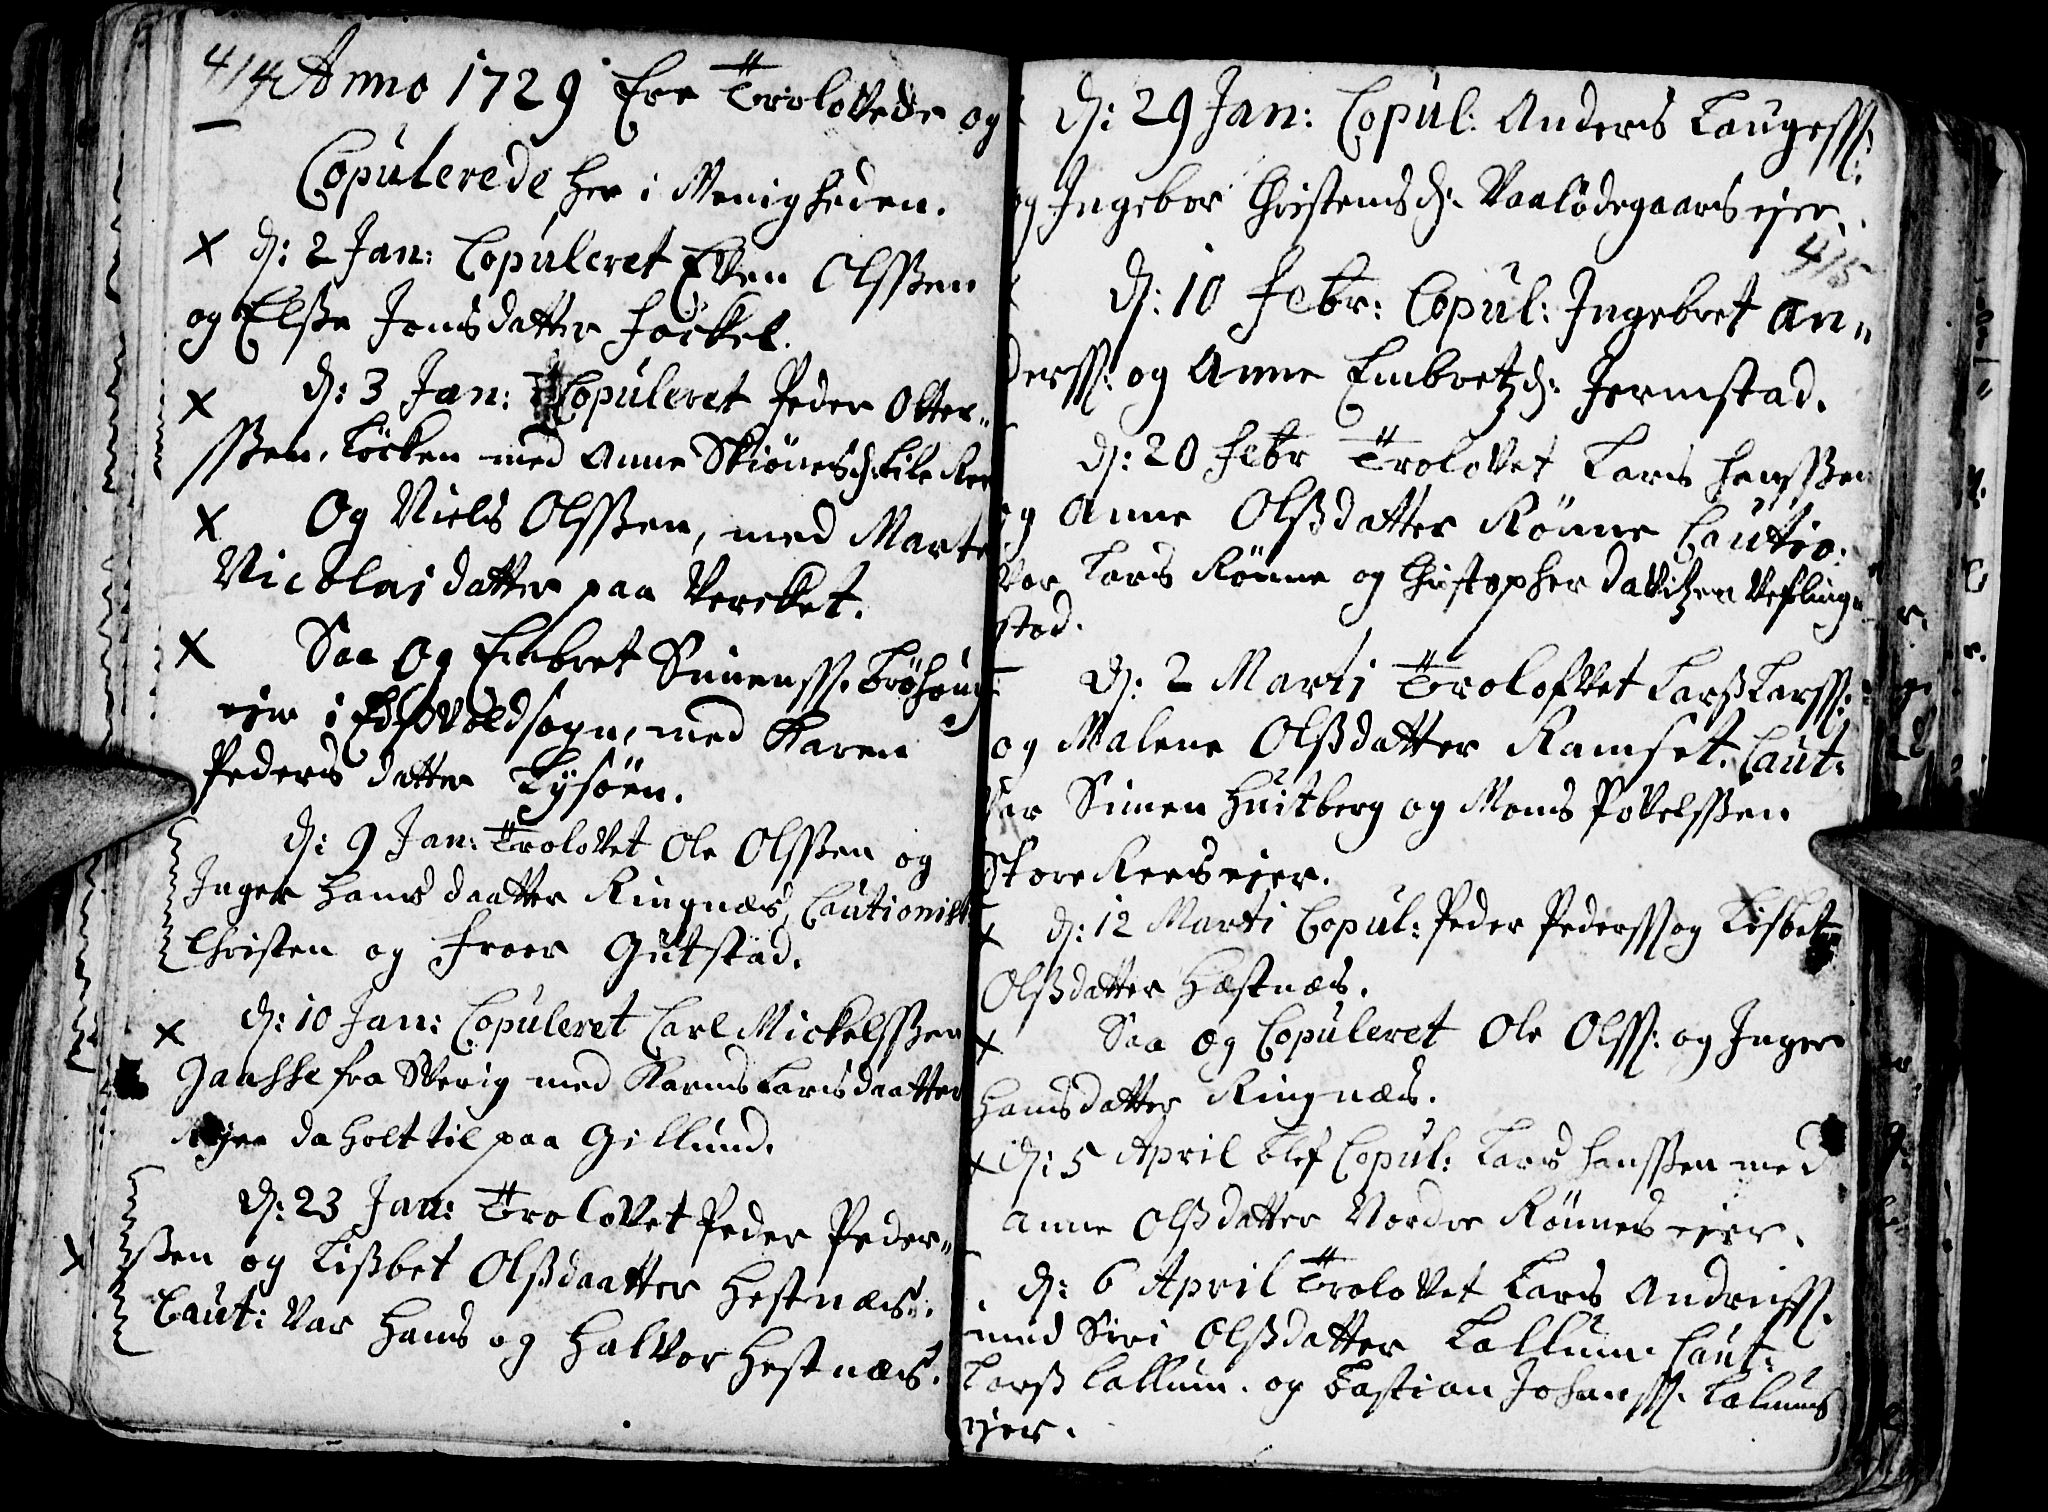 414 Anno 1729 Ere Trolovede og
Copulerede her i Menigheden.
x d: 2 Jan: Copuleret Even Olsßen
og Elße Jonsdatter Fockel.
x d: 3 Jan: Copuleret Peder Olter„
sßen. Löcken med Anne Skiönesd.
x Og Niels Olsßen, med Marte
Nicolaidatter paa Vercket.
x Saa Og Embret Simenss.
eje i Edsvoldsogn, med Karen
Peders datter Lysöen.
d: 9 Jan: Trolovet Ole Olsßen og
Inger Hans daatter Ringnæs, Cautionist:
Christen og Froer Gutstad.
x d: 10 Jan: Copuleret Carl Mickelsßen
Janhße fra Sverig med Karen Larisdaatter
da holt til paa Gillund.
d: 23 Jan: Trolovet Peder Peder„
x ßen og Lißbet Olßdaatter Hestnæs.
Caut: Var Hans og Halvor Hestnæs.
d: 29 Jan: Copul: Anders Laugesss:
og Ingebor Christensd: Vaalödegaars ejer.
415
d: 10 Febr: Copul: Ingebret An„
derss: og Anne Embretzd: Jermstad.
d: 20 Febr Trolovet Lars Hansßen
og Anne Olßdatter Rönne Cautio:
Var Lars Rönne og Christopher Davitzen Veflings
stad.
d: 2 Marti Trolofvet Larß Larss:
og Malene Olßdatter Ramset. Caut:
Var Simen Huitberg og Mons Povelsßen
Store Reesejer.
x d: 12 Marti Copul: Peder Pederss og Lisbet
Olßdatter Hæstnæs.
x Saa og Copuleret Ole Olss: og Inger
Hansdatter Ringnæs.
x d: 5 April blef Copul: Lars Hansßen med
Anne Olßdatter Nordre Rönnes ejer.
d: 6 April Trolovet Lars Andriss.
med Siri Olßdatter Lallum Caut:
Larß Lallum. og Bastian Johanss. Lalums
ejer.